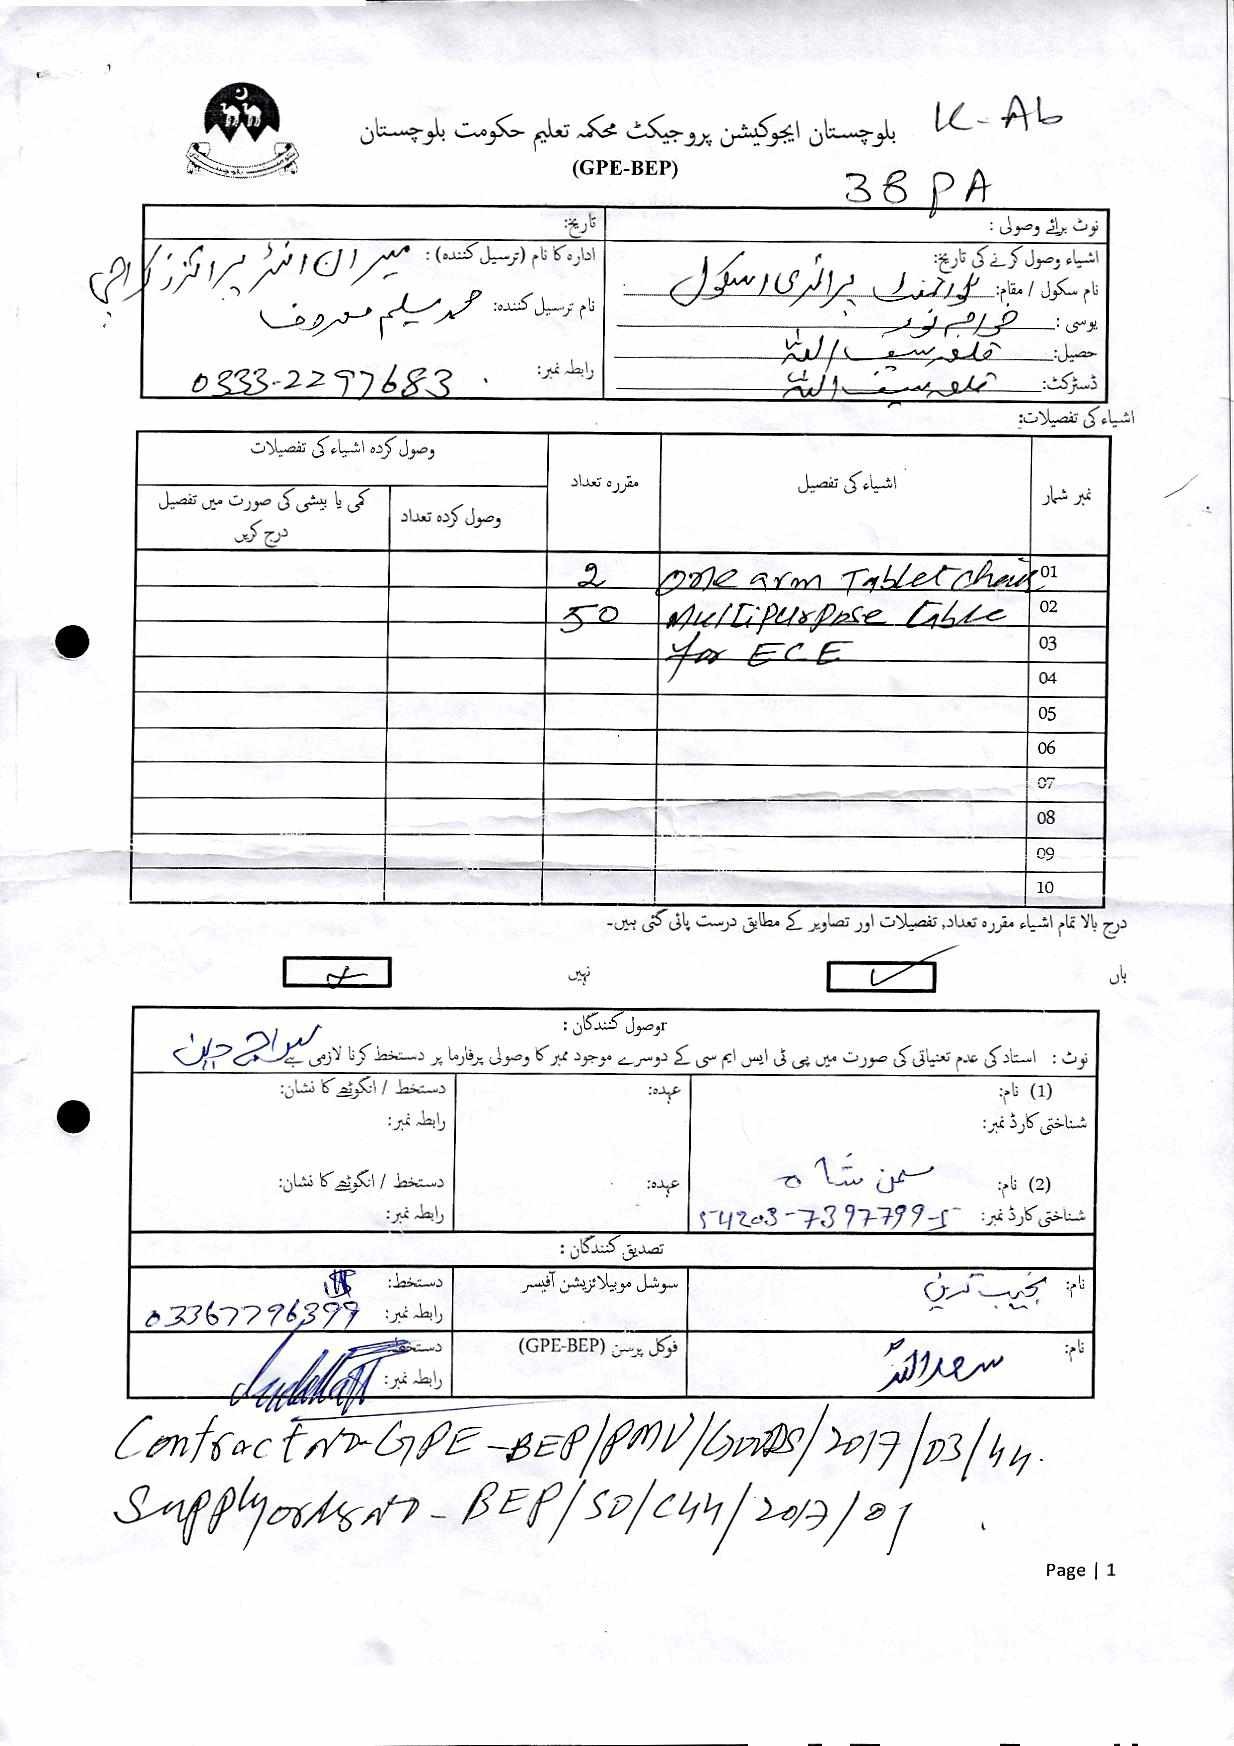 بلوچستان ایجوکیشن پروجیکٹ محکمہ تعلیم حکومت بلوچستان
K-Ab
(GPE-BEP)
38 PA
نوٹ برائے وصولی :
تاریخ:
اشیاء وصول کرنے کی تاریخ:
ادارہ کا نام (ترسیل کنندہ) : میران انٹر پرائزز کراچی
نام سکول / مقام: گورنمنٹ پرائمری اسکول
نام ترسیل کنندہ: محمد سلیم معروف
یوسی :
حصیل: قلعہ سیف اللہ
رابطہ نمبر: 0333-2297683
ڈسٹرکٹ: قلعہ سیف اللہ
اشیاء کی تفصیلات:
نمبر شمار
اشیاء کی تفصیل
مقررہ تعداد
وصول کردہ اشیاء کی تفصیلات
وصول کردہ تعداد
کمی یا بیشی کی صورت میں تفصیل درج کریں
01 one arm Tablet Chair 2
02 Multipurpose table 50
03 for ECE
04
05
06
07
08
09
10
درج بالا تمام اشیاء مقررہ تعداد, تفصیلات اور تصاویر کے مطابق درست پائی گئی ہیں۔
ہاں ✓
نہیں
وصول کنندگان :
نوٹ : استاد کی عدم تعیناتی کی صورت میں پی ٹی ایس ایم سی کے دوسرے موجود ممبر کا وصولی پرفارما پر دستخط کرنا لازمی ہے
(1) نام:
عہدہ:
دستخط / انگوٹھے کا نشان:
شناختی کارڈ نمبر:
رابطہ نمبر:
(2) نام: سمن شاہ
عہدہ:
دستخط / انگوٹھے کا نشان:
شناختی کارڈ نمبر: 54203-7397799-5
رابطہ نمبر:
تصدیق کنندگان :
نام: نجیب ترین
سوشل موبیلائزیشن آفیسر
دستخط:
رابطہ نمبر: 03367796399
نام: سعداللہ
فوکل پرسن (GPE-BEP)
دستخط:
رابطہ نمبر:
Contract No-GPE-BEP/PMU/GOODS/2017/03/44.
Supply order No-BEP/SO/C44/2017/01
Page | 1